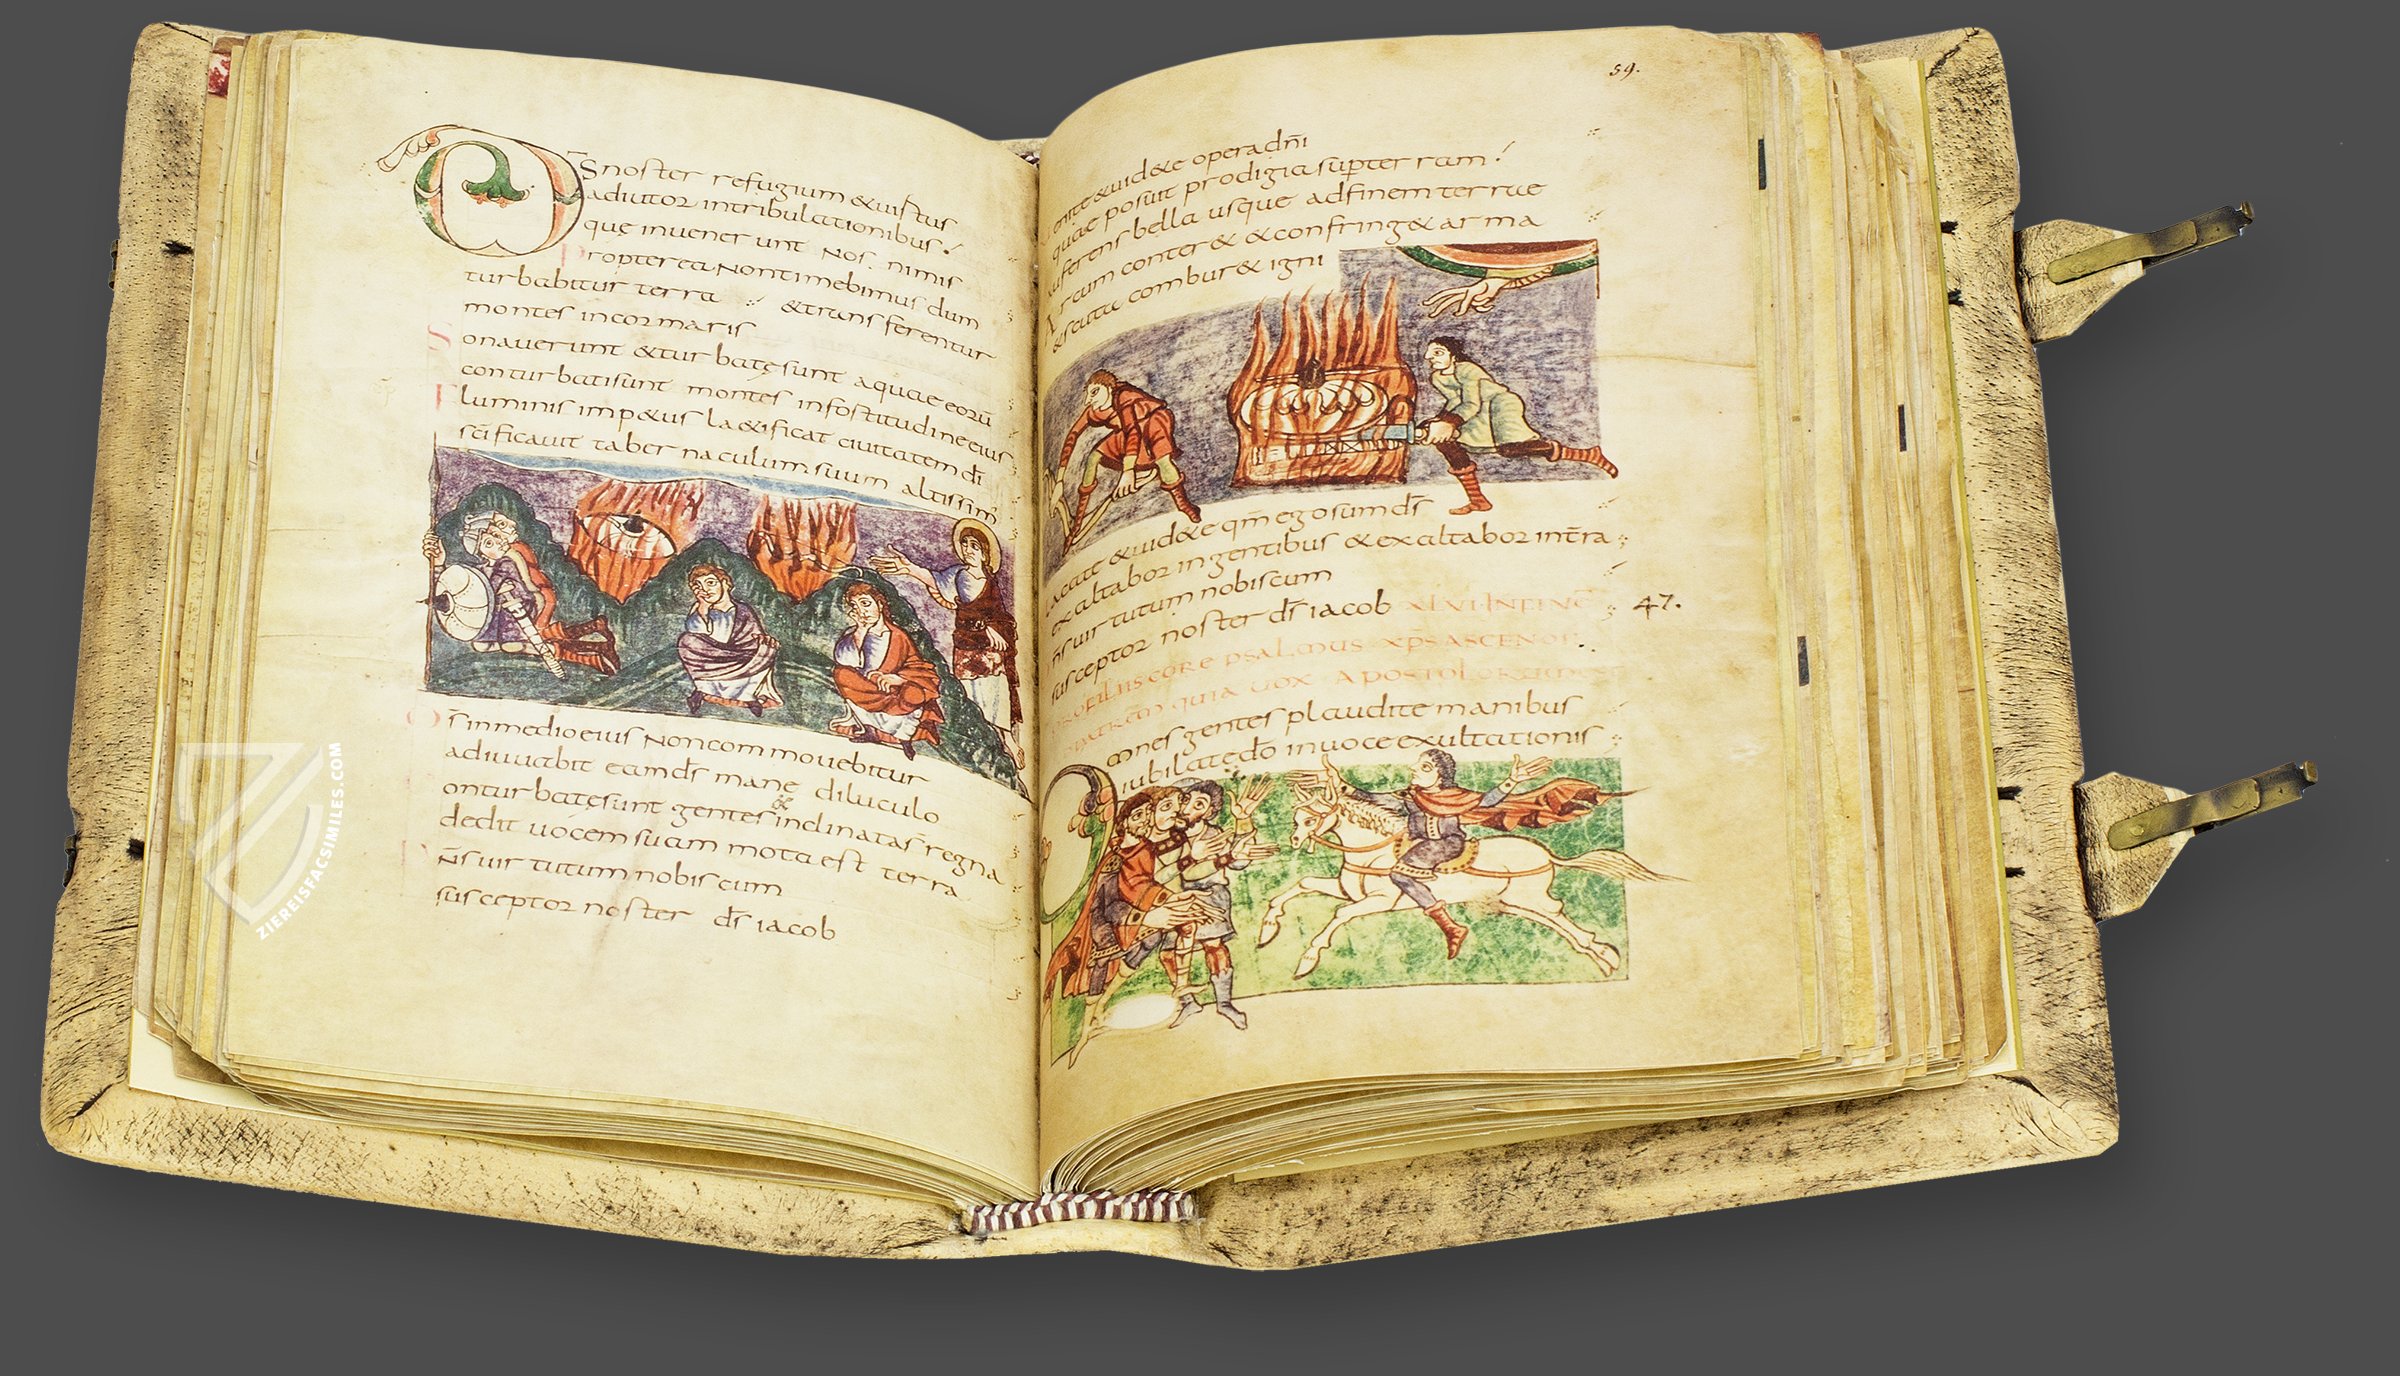 D̄S noster refugium & uirtus
adiutor intribulationibus
quę inuenerunt nos. nimis
Propterea non timebimus dum
turbabitur terra & transferentur
montes incor maris
Sonauerunt & turbatę sunt aquae eorū
conturbati sunt montes infortitudine eius
Fluminis imp&us la&ificat ciuitatem dī
sc̄ificauit tabernaculum suum altissim̄
D̄s inmedio eius non commouebitur
adiuuabit eam ds̄ mane diluculo
Conturbatę sunt gentes & inclinata s̄ regna
dedit uocem suam mota est terra
Dn̄s uirtutum nobiscum
susceptor noster ds̄ iacob
ZIEREISFACSIMILES.COM
59.
Uenite & uid&e opera dn̄i
quae posuit prodigia sup terram
auferens bella usque adfinem terrae
Arcum conter& & confring& arma
& scuta combur& igni
Uacate & uid&e qm̄ ego sum ds̄
exaltabor in gentibus & exaltabor int̄ra
Dn̄s uirtutum nobiscum
susceptor noster ds̄ iacob XLVI IN FINĒ
47.
PRO FILIIS CORE PSALMUS XP̄S ASCENDIT
PATREM QUIA UOX APOSTOLORUM
Omnes gentes plaudite manibus
iubilate dō in uoce exultationis